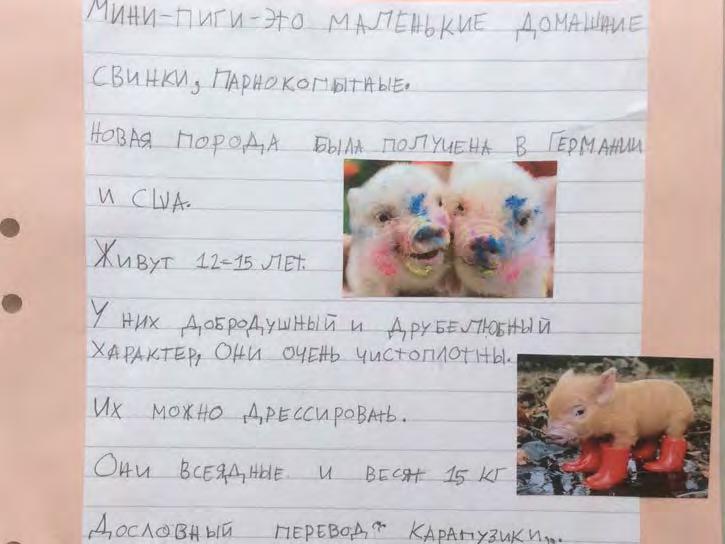 Мини-пиги-это маленькие домашние
свинки, парнокопытные.
новая порода была получена в Германии
и США.
Живут 12-15 лет.
У них добродушный и друбелюбный
характер, они очень чистоплотны.
Их можно дрессировать.
Они всеядные и весят 15 кг
Дословный перевод "карапузики".